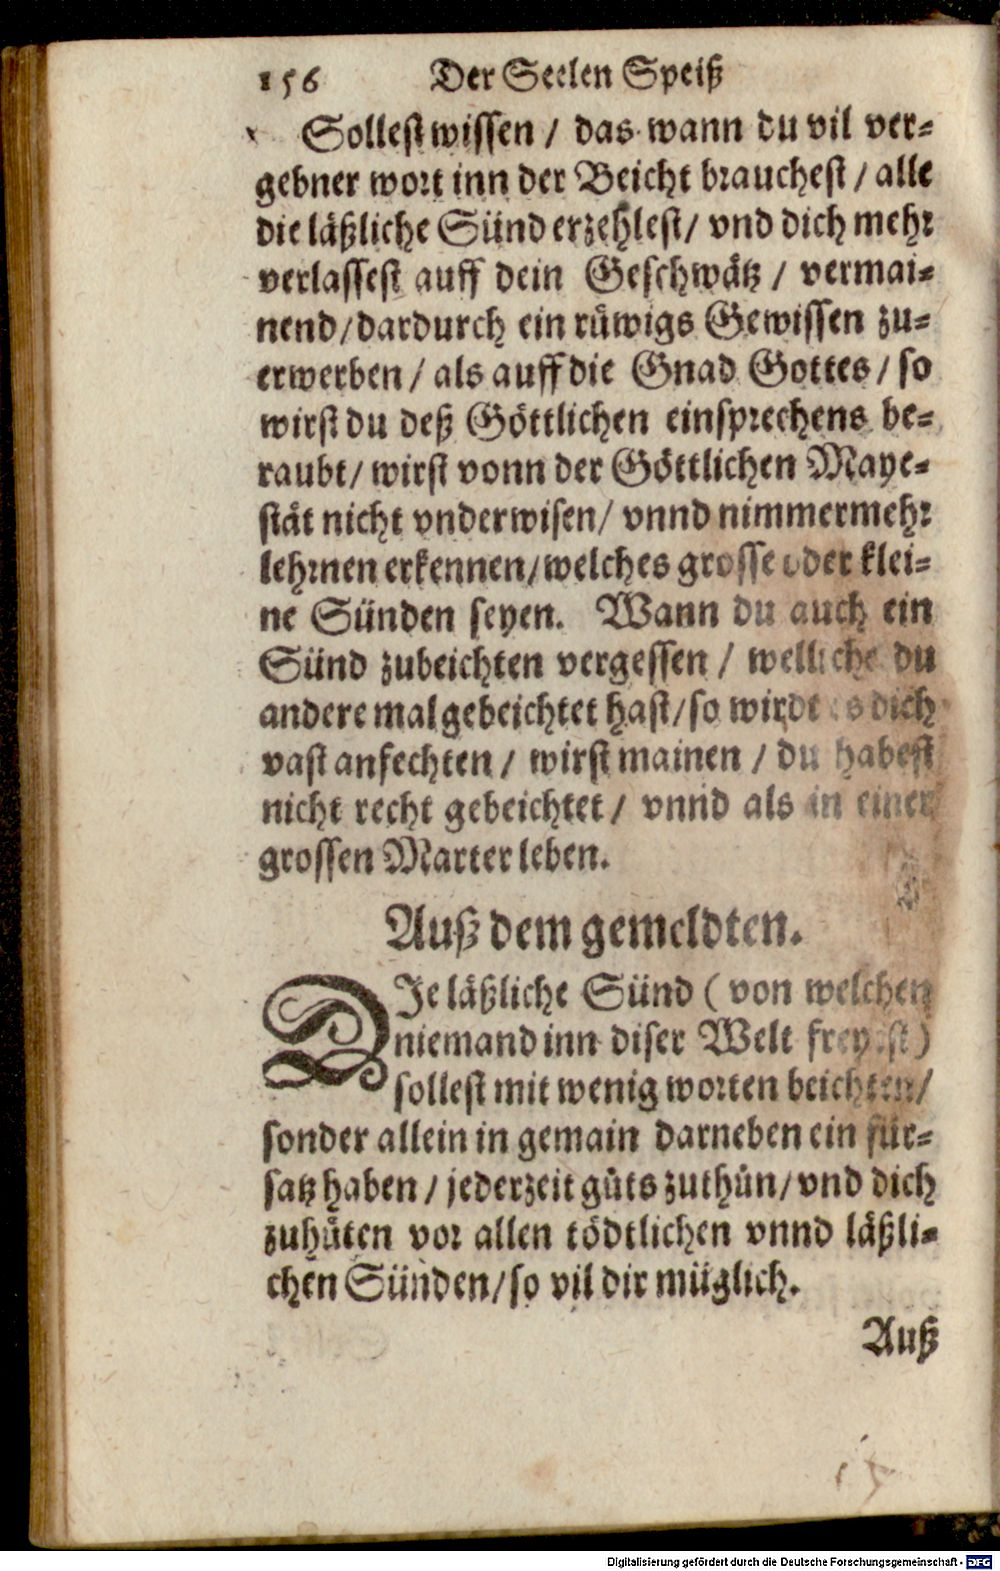 156 Der Seelen Speiß
Sollest wissen / das wann du vil ver-
gebner wort inn der Beicht brauchest / alle
die läßliche Sünd erzehlest / vnd dich mehr
verlassest auff dein Geschwätz / vermai-
nend / dardurch ein rüwigs Gewissen zu-
erwerben / als auff die Gnad Gottes / so
wirst du deß Göttlichen einsprechens be-
raubt / wirst vonn der Göttlichen Maye-
stät nicht vnderwisen / vnnd nimmermehr
lehrnen erkennen / welches grosse oder klei-
ne Sünden seyen. Wann du auch ein
Sünd zubeichten vergessen / welliche du
andere mal gebeichtet hast / so wirdt es dich
vast anfechten / wirst mainen / du habest
nicht recht gebeichtet / vnnd als in einer
grossen Marter leben.
Auß dem gemeldten.
DIe läßliche Sünd ( von welchen
niemand inn diser Welt frey ist )
sollest mit wenig worten beichten /
sonder allein in gemain darneben ein für-
satz haben / jederzeit gůts zuthůn / vnd dich
zuhüten vor allen tödtlichen vnnd läßli-
chen Sünden / so vil dir müglich.
Auß
Digitalisierung gefördert durch die Deutsche Forschungsgemeinschaft - DFG